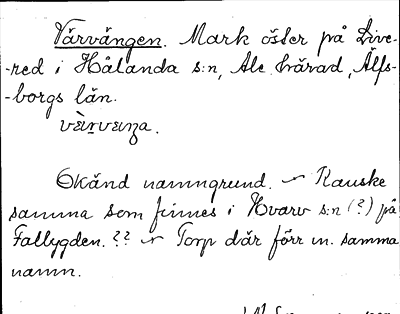 Vårvången. Mark öster på Live-
-red i Hålanda s:n, Ale härad, Älfs-
-borgs län.
Okänd namngrund. ~ Kanske
samma som finnes i Hvarv s:n (?) på
Fallygden. ?? ~ Torp där förr m. samma
namn.